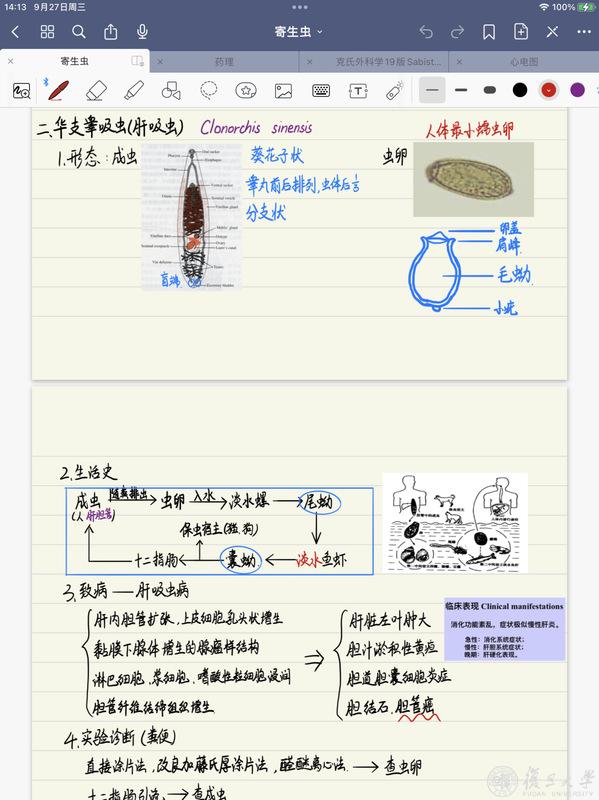 14:13 9月27日周三
100%
寄生虫
寄生虫
药理
克氏外科学19版 Sabist...
心电图
二、华支睾吸虫(肝吸虫) Clonorchis sinensis
人体最小蠕虫卵
1.形态:成虫
葵花子状
睾丸前后排列,虫体后1/3
分支状
盲端
虫卵
卵盖
肩峰
毛蚴
小疣
2.生活史
成虫 随粪排出 虫卵 入水 淡水螺 尾蚴
(人肝胆管)
保虫宿主(猫.狗)
十二指肠 囊蚴 淡水鱼虾
3.致病 — 肝吸虫病
肝内胆管扩张,上皮细胞乳头状增生
黏膜下腺体增生的腺瘤样结构
淋巴细胞、浆细胞、嗜酸性粒细胞浸润
胆管纤维结缔组织增生
肝脏左叶肿大
胆汁淤积性黄疸
胆道胆囊细胞炎症
胆结石.胆管癌
临床表现 Clinical manifestations
消化功能紊乱,症状极似慢性肝炎。
急性:消化系统症状;
慢性:肝胆系统症状;
晚期:肝硬化表现。
4.实验诊断(粪便)
直接涂片法,改良加藤氏厚涂片法,醛醚离心法 查虫卵
十二指肠引流 查成虫
復旦大學
FUDAN UNIVERSITY